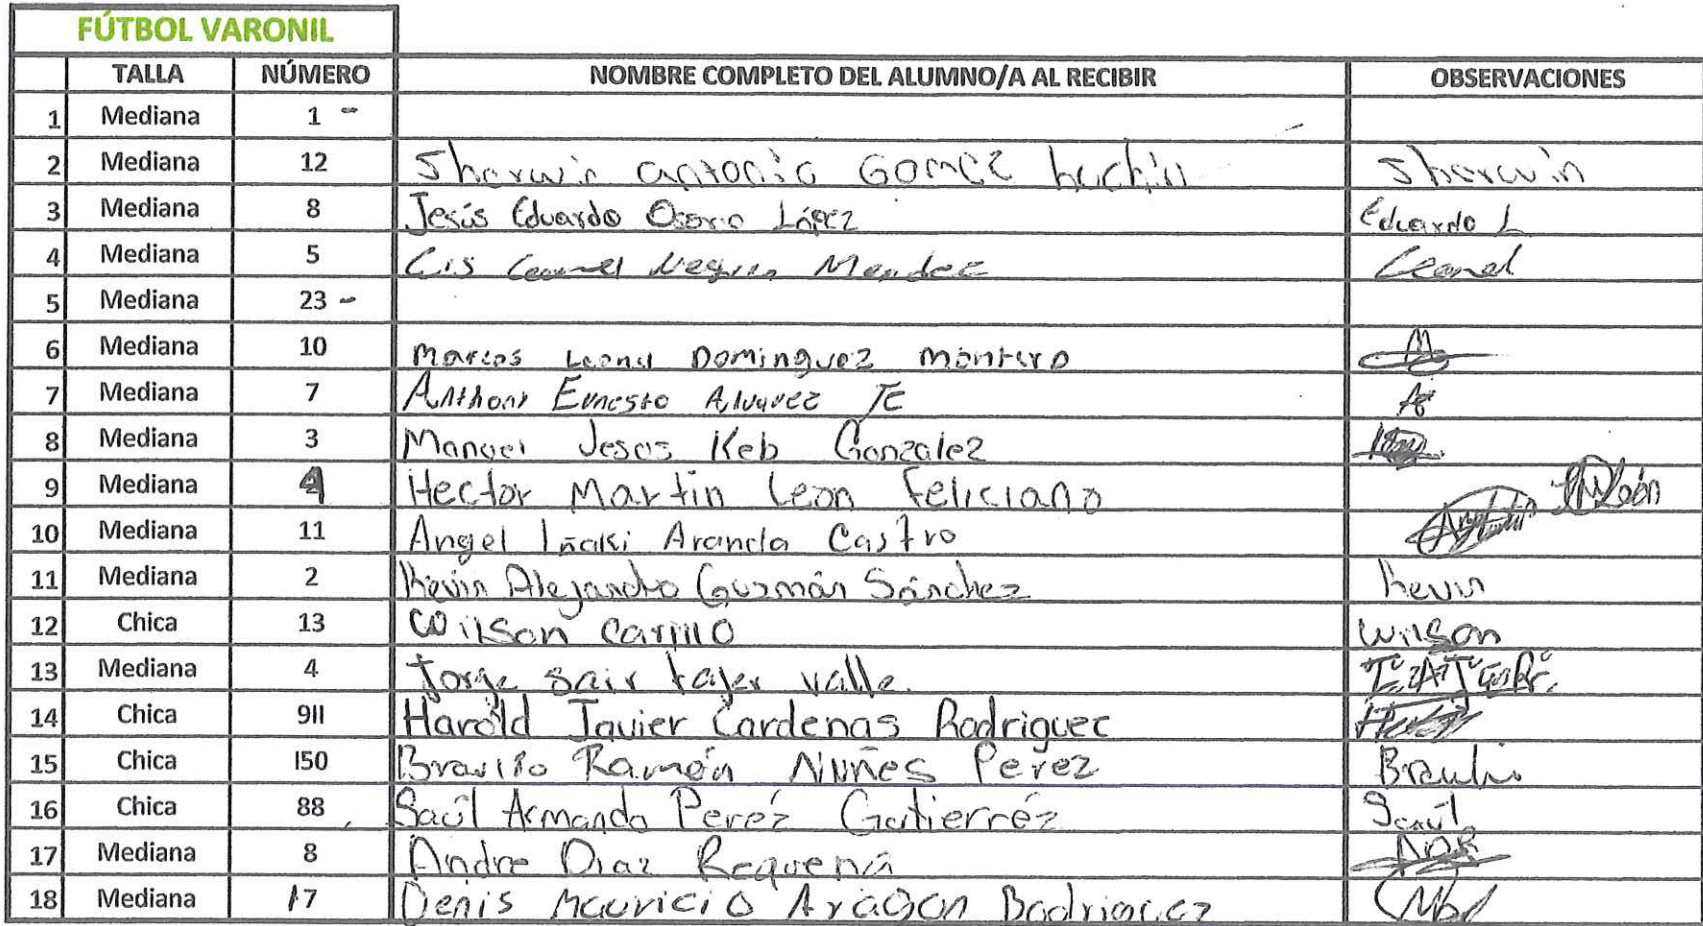 FÚTBOL VARONIL
TALLA NÚMERO NOMBRE COMPLETO DEL ALUMNO/A AL RECIBIR OBSERVACIONES
1 Mediana 1 -
2 Mediana 12 Sherwin antonio GOMEZ huchin Sherwin
3 Mediana 8 Jesús Eduardo Osorio López Eduardo L
4 Mediana 5 Leonel Mendez Leonel
5 Mediana 23 -
6 Mediana 10 Marcos Leonel Dominguez montero
7 Mediana 7 Anthony Ernesto Alvarez
8 Mediana 3 Manuel Jesus Keb Gonzalez
9 Mediana 4 Hector Martin Leon Feliciano
10 Mediana 11 Angel Iñaki Aranda Castro
11 Mediana 2 Kevin Alejandro Guzmán Sánchez Kevin
12 Chica 13 Wilson Carrillo Wilson
13 Mediana 4 Jorge sair valle.
14 Chica 911 Harold Javier Cardenas Rodriguez
15 Chica 150 Braulio Ramón Nuñes Perez Braulio
16 Chica 88 Saúl Armando Peréz Gutierréz Saúl
17 Mediana 8 Andre Diaz Requena
18 Mediana 17 Denis Mauricio Aragon Rodriguez